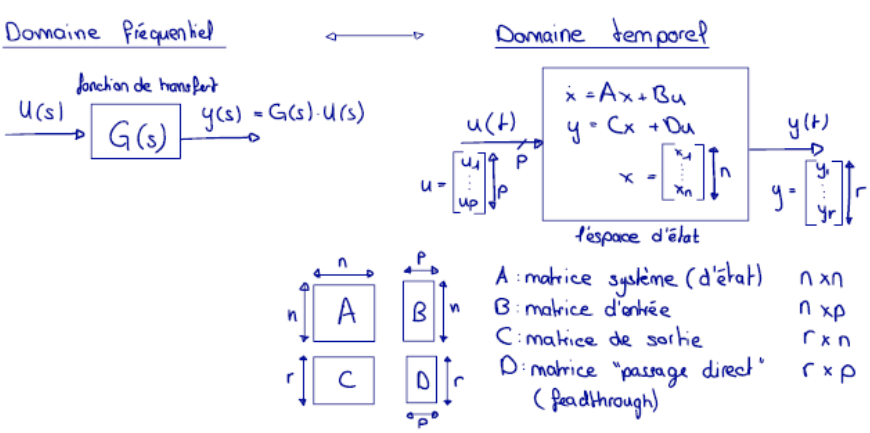 Domaine fréquentiel ↔ Domaine temporel
fonction de transfert
U(s) G(s) y(s) = G(s)·U(s)
u(t) p
ẋ = Ax + Bu
y = Cx + Du
x = [x1 ⋮ xn] n
y(t)
u = [u1 ⋮ up] p
y = [y1 ⋮ yr] r
l'espace d'état
n p
n A B n
r C D r
p
A : matrice système (d'état) n x n
B : matrice d'entrée n x p
C : matrice de sortie r x n
D : matrice "passage direct" r x p
(feadthrough)